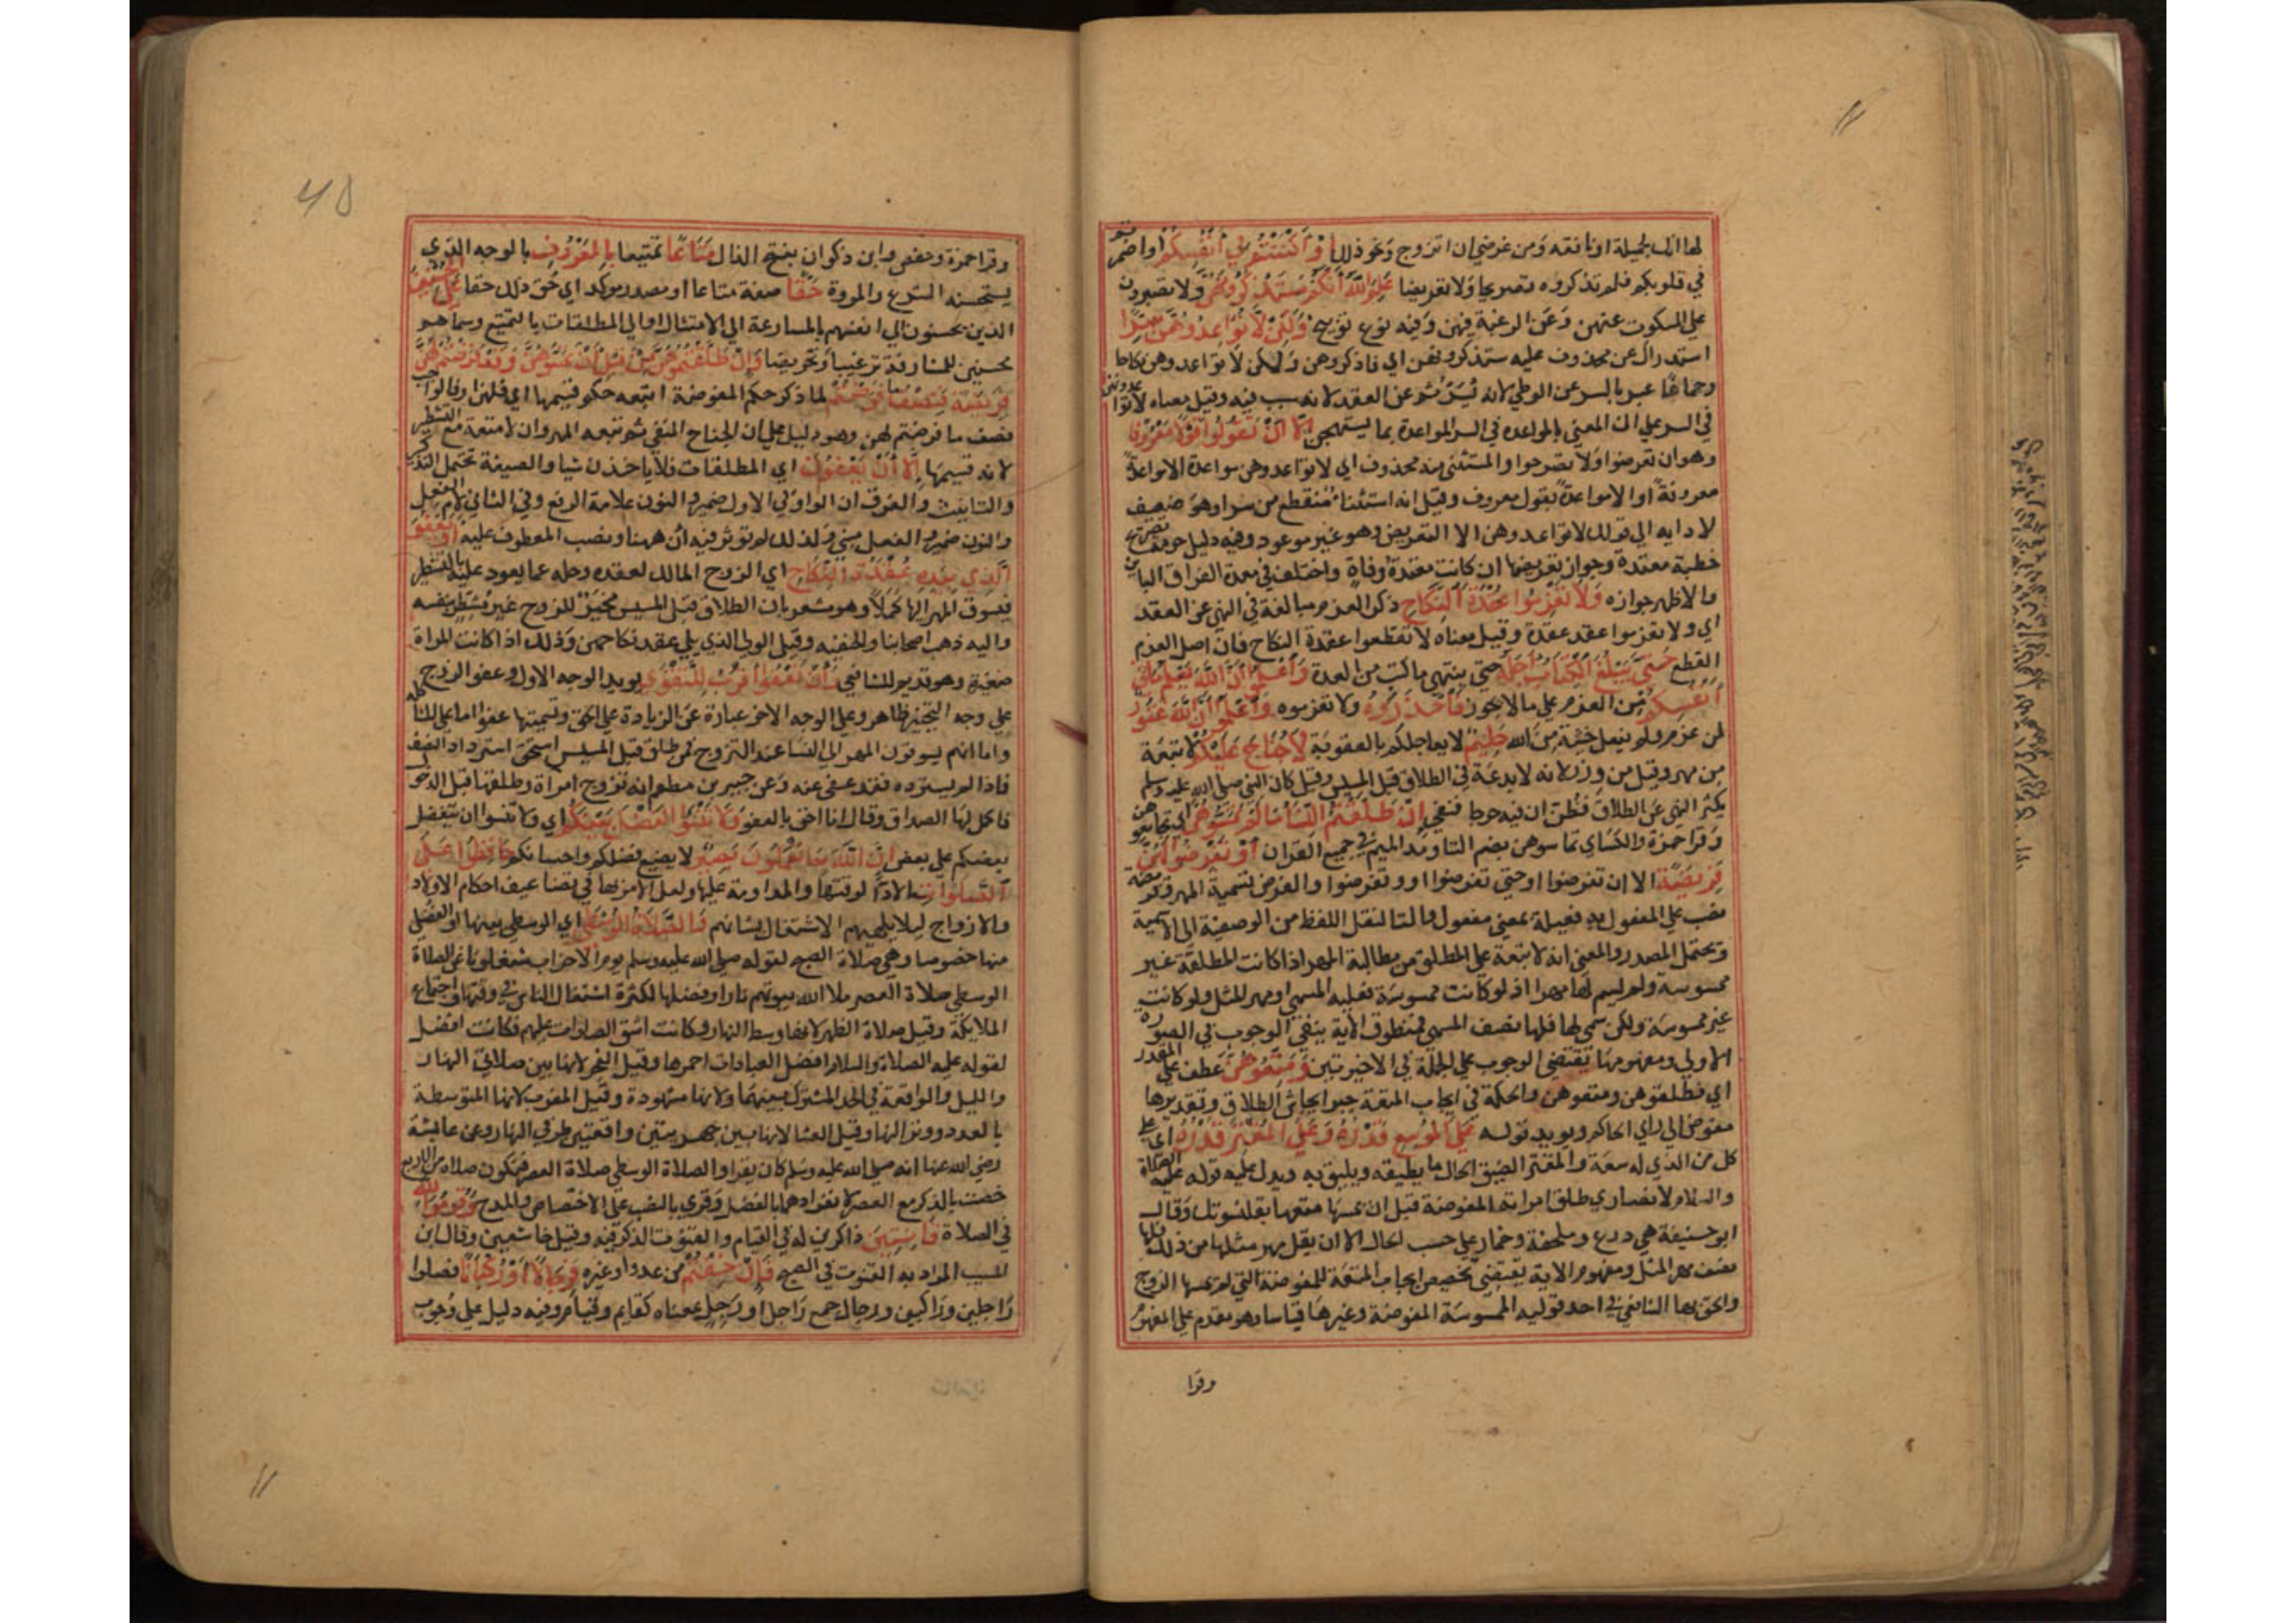 لها انك لجميلة او نافعة ومن غرضي ان اتزوج ونحو ذلك او اكننتم في انفسكم او اضمرتم
في قلوبكم فلم تذكروه تصريحا ولا تعريضا علم الله انكم ستذكرونهن ولا تصبرون
على السكوت عنهن وعن الرغبة فيهن وفيه نوع توبيخ ولكن لا تواعدوهن سرا
استدراك عن محذوف عليه ستذكرونهن اي فاذكروهن ولكن لا تواعدوهن نكاحا
وجماعا عبر بالسر عن الوطي لانه يسر ثم عن العقد لانه سبب فيه وقيل معناه لا تواعدوهن
في السر على ان المعني بالمواعدة في السر المواعدة بما يستهجن الا ان تقولوا قولا معروفا
وهو ان تعرضوا ولا تصرحوا والمستثنى منه محذوف اي لا تواعدوهن مواعدة الا مواعدة
معروفة او الا مواعدة بقول معروف وقيل انه استثناء منقطع من سرا وهو ضعيف
لادايه الي قولك لا تواعدوهن الا التعريض وهو غير موعود وفيه دليل حرمة تصريح
خطبة معتدة وجواز تعريضها ان كانت معتدة وفاة واختلف في معتدة الفراق الباين
والاظهر جوازه ولا تعزموا عقدة النكاح ذكر العزم مبالغة في النهي عن العقد
اي ولا تعزموا عقد عقدة وقيل معناه لا تقطعوا عقدة النكاح فان اصل العزم
القطع حتى يبلغ الكتاب اجله حتي ينتهي ما كتب من العدة واعلموا ان الله يعلم ما في
انفسكم من العزم على ما لا يجوز فاحذروه ولا تعزموه واعلموا ان الله غفور
لمن عزم ولم يفعل خشية من الله حليم لا يعاجلكم بالعقوبة لا جناح عليكم لا تبعة
من مهر وقيل من وزر لانه لا بدعة في الطلاق قبل المسيس وقيل كان النبي صلى الله عليه وسلم
يكثر النهي عن الطلاق فظن ان فيه حرجا فنفي ان طلقتم النساء ما لم تمسوهن اي تجامعوهن
وقرا حمزة والكساي تماسوهن بضم التا ومد الميم في جميع القران او تفرضوا لهن
فريضة الا ان تفرضوا او حتي تفرضوا او وتفرضوا والفرض تسمية المهر وفريضة
نصب على المفعول به فعيلة بمعنى مفعول والتا لنقل اللفظ من الوصفية الى الاسمية
ويحتمل المصدر والمعنى انه لا تبعة على المطلق من مطالبة المهر اذا كانت المطلقة غير
ممسوسة ولم يسم لها مهرا اذ لو كانت ممسوسة فعليه المسمى او مهر المثل ولو كانت
غير ممسوسة ولكن سمي لها فلها نصف المسمى فمنطوق الاية ينفي الوجوب في الصورة
الاولي ومفهومها يقتضي الوجوب على الجملة في الاخيرتين ومتعوهن عطف على المقدر
اي فطلقوهن ومتعوهن والحكمة في ايجاب المتعة جبر ايحاش الطلاق وتقديرها
مفوض الى راي الحاكم ويويده قوله على الموسع قدره وعلى المقتر قدره اي على
كل من الذي له سعة والمقتر الضيق الحال ما يطيقه ويليق به ويدل عليه قوله عليه الصلاة
والسلام لانصاري طلق امراته المفوضة قبل ان يمسها متعها بقلنسوتك وقال
ابو حنيفة هي درع وملحفة وخمار على حسب الحال الا ان يقل مهر مثلها من ذلك فلها
نصف مهر المثل ومفهوم الاية يقتضي تخصيص ايجاب المتعة للمفوضة التي لم يمسها الزوج
والحق بها الشافعي في احد قوليه الممسوسة المفوضة وغيرها قياسا وهو مقدم على المفهوم
وقرا
وقرا حمزة وحفص وابن ذكوان بفتح الدال متاعا تمتيعا بالمعروف بالوجه الذي
يستحسنه الشرع والمروة حقا صفة متاعا او مصدر موكد اي حق ذلك حقا على المحسنين
الذين يحسنون الى انفسهم بالمسارعة الى الامتثال او الى المطلقات بالتمتيع وسماهم
محسنين للمشارفة ترغيبا وتحريضا وان طلقتموهن من قبل ان تمسوهن وقد فرضتم لهن
فريضة فنصف ما فرضتم لما ذكر حكم المفوضة اتبعه حكم قسيمها اي فلهن او فالواجب
نصف ما فرضتم لهن وهو دليل على ان الجناح المنفي ثم تبعة المهر وان لا متعة مع التشطير
لانه قسيمها الا ان يعفون اي المطلقات فلا ياخذن شيا والصيغة تحتمل التذكير
والتانيث والفرق ان الواو في الاول ضمير والنون علامة الرفع وفي الثاني لام الفعل
والنون ضمير والفعل مبني ولذلك لم توثر فيه ان ههنا ونصب المعطوف عليه او يعفو
الذي بيده عقدة النكاح اي الزوج المالك لعقده وحله عما يعود عليه بالتشطير
فيسوق المهر اليها كملا وهو مشعر بان الطلاق قبل المسيس مخير للزوج غير مشطر بنفسه
واليه ذهب اصحابنا والحنفية وقيل الولي الذي يلي عقد نكاحهن وذلك اذا كانت المراة
صغيرة وهو قديم للشافعي وان تعفوا اقرب للتقوى يويد الوجه الاول وعفو الزوج
على وجه التخيير ظاهر وعلى الوجه الاخر عبارة عن الزيادة على الحق وتسميتها عفوا اما على المشاكلة
واما انهم يسوقون المهر الى النسا عند التزوج فمن طلق قبل المسيس استحق استرداد النصف
فاذا لم يسترده فقد عفى عنه وعن جبير بن مطعم انه تزوج امراة وطلقها قبل الدخول
فاكمل لها الصداق وقال انا احق بالعفو ولا تنسوا الفضل بينكم اي ولا تنسوا ان يتفضل
بعضكم على بعض ان الله بما تعملون بصير لا يضيع تفضلكم واحسانكم حافظوا على
الصلوات بالادا لوقتها والمداومة عليها ولعل الامر بها في تضاعيف احكام الاولاد
والازواج ليلا يلهيهم الاشتغال بشانهم والصلاة الوسطى اي الوسطى بينها او الفضلى
منها خصوصا وهي صلاة العصر لقوله صلى الله عليه وسلم يوم الاحزاب شغلونا عن الصلاة
الوسطى صلاة العصر ملا الله بيوتهم نارا وفضلها لكثرة اشتغال الناس في وقتها واجتماع
الملايكة وقيل صلاة الظهر لانها وسط النهار وكانت اشق الصلوات عليهم فكانت افضل
لقوله عليه الصلاة والسلام افضل العبادات احمزها وقيل الفجر لانها بين صلاتي النهار
والليل والواقعة في الحد المشترك بينهما ولانها مشهودة وقيل المغرب لانها المتوسطة
بالعدد ووتر النهار وقيل العشا لانها بين جهريتين واقعتين طرفي النهار وعن عايشة
رضي الله عنها انه صلى الله عليه وسلم كان يقرا والصلاة الوسطى وصلاة العصر فتكون صلاة من الاربع
خصت بالذكر مع العصر لانفرادهما بالفضل وقري بالنصب على الاختصاص والمدح وقوموا لله
في الصلاة قانتين ذاكرين له في القيام والقنوت الذكر فيه وقيل خاشعين وقال ابن
المسيب المراد به القنوت في الصبح فان خفتم من عدو او غيره فرجالا او ركبانا فصلوا
راجلين وراكبين ورجال جمع راجل او رجل بمعناه كقايم وقيام وفيه دليل على وجوب